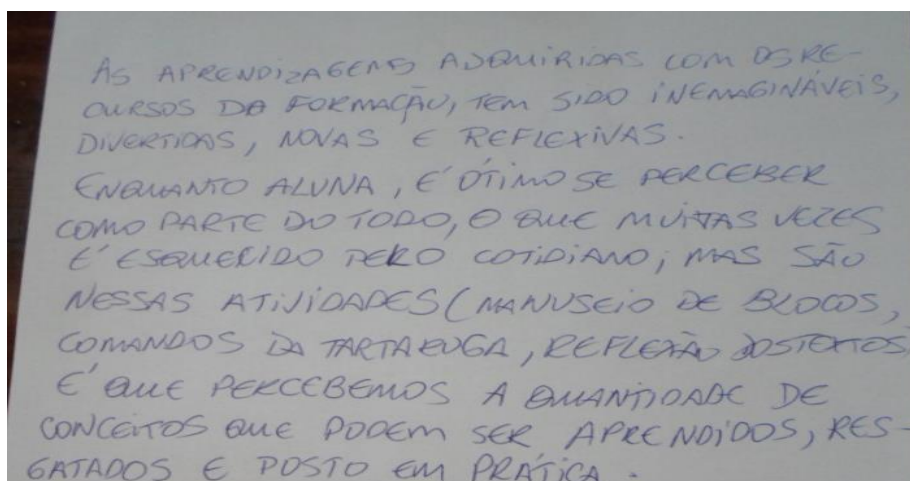 AS APRENDIZAGENS ADQUIRIDAS COM OS RE-
CURSOS DA FORMAÇÃO, TEM SIDO INEMAGINÁVEIS,
DIVERTIDAS, NOVAS E REFLEXIVAS.
ENQUANTO ALUNA, É ÓTIMO SE PERCEBER
COMO PARTE DO TODO, O QUE MUITAS VEZES
É ESQUECIDO PELO COTIDIANO; MAS SÃO
NESSAS ATIVIDADES (MANUSEIO DE BLOCOS,
COMANDOS DA TARTARUGA, REFLEXÃO DOS TEXTOS)
É QUE PERCEBEMOS A QUANTIDADE DE
CONCEITOS QUE PODEM SER APRENDIDOS, RES-
GATADOS E POSTO EM PRÁTICA.